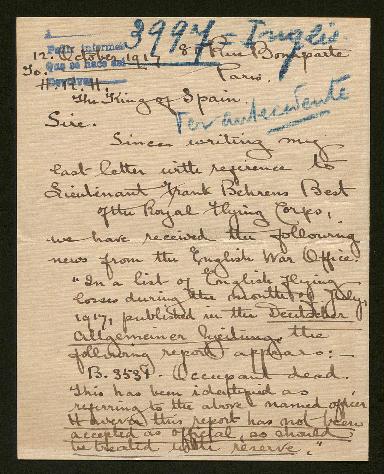 3997 = Inglés
8 Rue Bonaparte
Paris.
12. October 1917
To.
H. M.
The King of Spain
Sire.
Since writing my
last letter with reference to
Lieutenant Frank Behrens Best
of the Royal Flying Corps,
we have received the following
news from the English War Office.
"In a list of English Flying
losses during the month of July,
1917, published in the Deutscher
Allgemeiner Zeitung, the
following report appears: —
B. 3531. Occupant dead.
This has been identified as
referring to the above named officer
However this report has not been
accepted as official, so should
be treated with reserve."